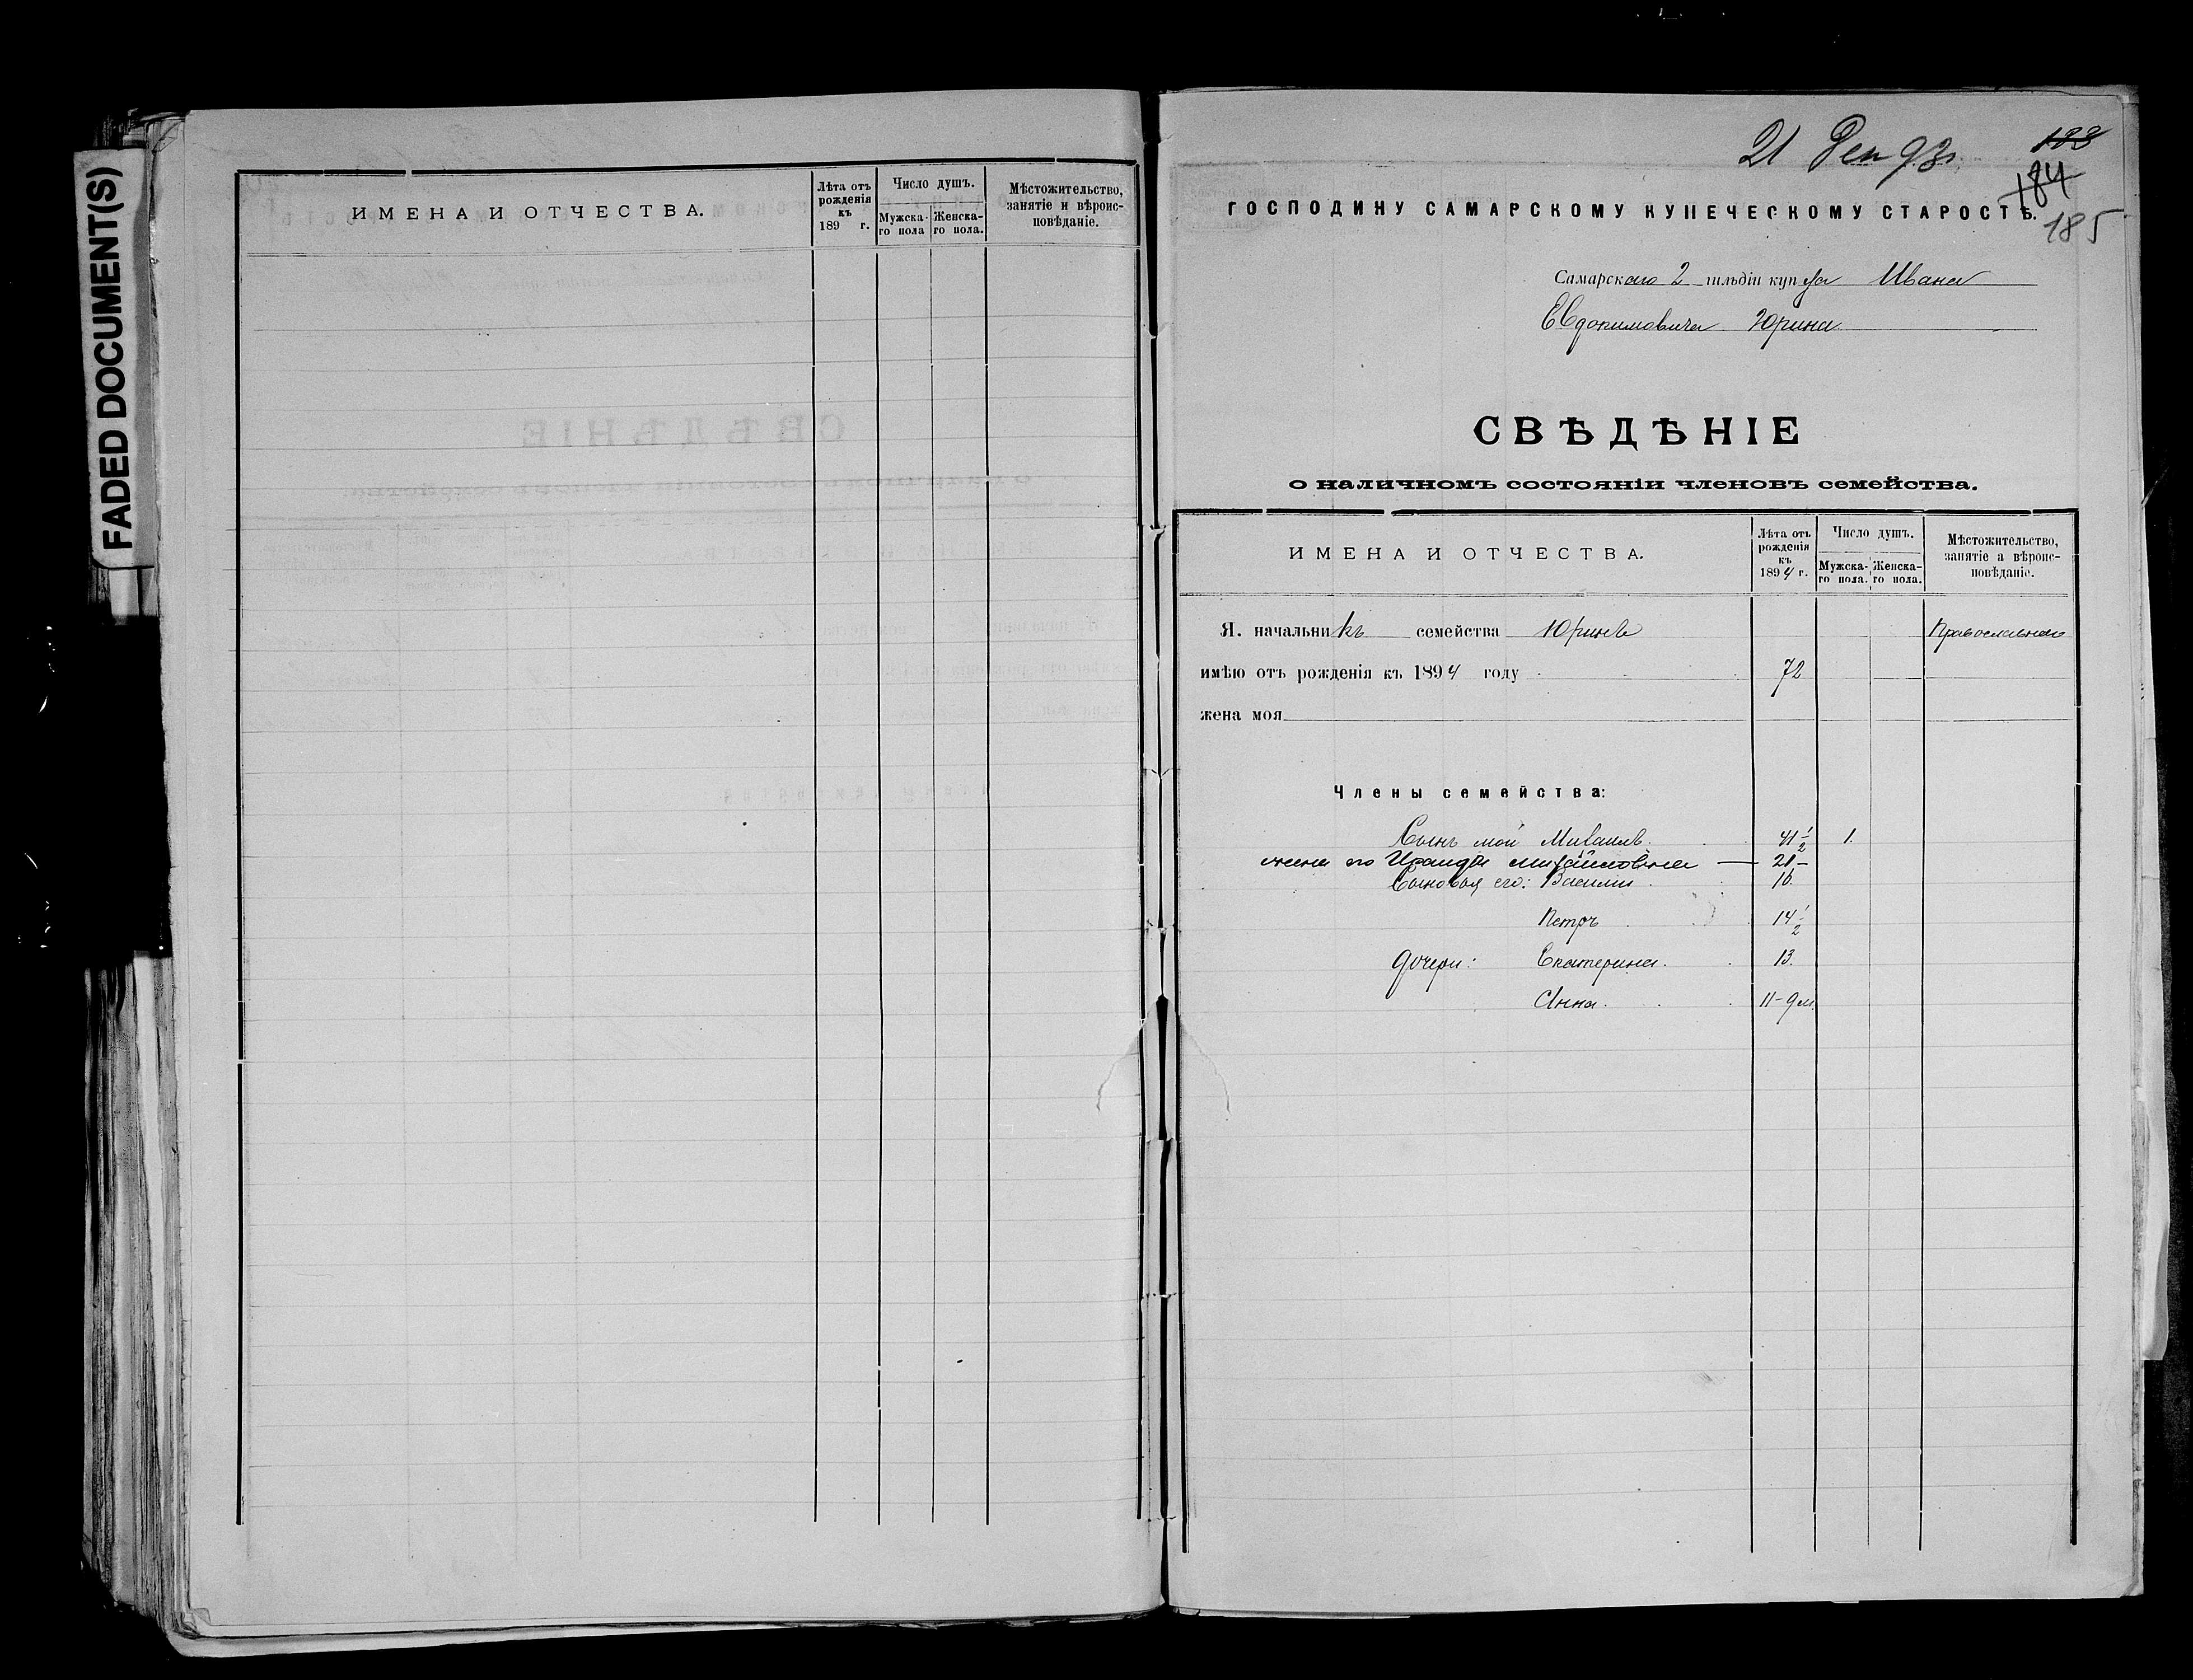 FADED DOCUMENT(S)
ИМЕНА И ОТЧЕСТВА.
Лѣта отъ рожденія къ 189 г.
Число душъ.
Мужска-го пола
Женска-го пола.
Мѣстожительство, занятіе и вѣроис-повѣданіе.
21 Дек 93 г.
188
184
185
ГОСПОДИНУ САМАРСКОМУ КУПЕЧЕСКОМУ СТАРОСТѢ.
Самарскаго 2 гильдіи купца Ивана
Евдокимовича Юрина
СВѢДѢНІЕ
о наличномъ состояніи членовъ семейства.
ИМЕНА И ОТЧЕСТВА.
Лѣта отъ рожденія къ 1894 г.
Число душъ.
Мужска-го пола.
Женска-го пола.
Мѣстожительство, занятіе а вѣроис-повѣданіе.
Я. начальникъ семейства Юринъ Православнаго
имѣю отъ рожденія къ 1894 году 72
жена моя
Члены семейства:
Сынъ мой Михаилъ 41 1/2 1.
жена его Ираида Михайловна — 21 —
Сыновья его: Василій 16.
Петръ 14 1/2
дочери: Екатерина. 13.
Анна. 11-9 м.